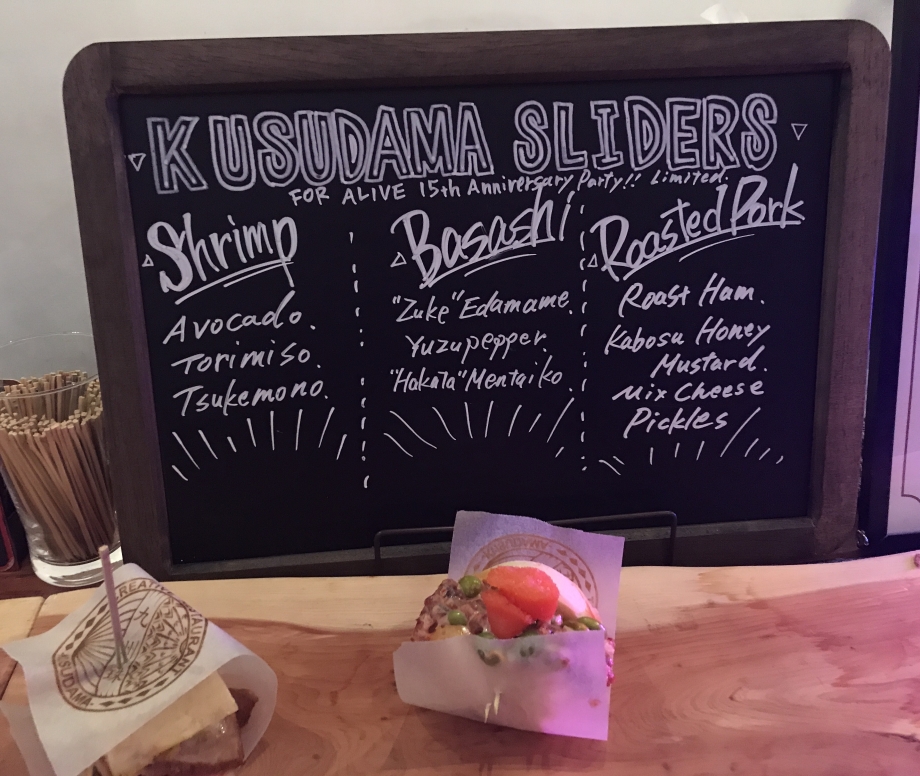 KUSUDAMA SLIDERS
FOR ALIVE 15th Anniversary Party!! Limited.
Shrimp
Avocado.
Torimiso.
Tsukemono.
Basashi
"Zuke" Edamame.
Yuzupepper.
"Hakata" Mentaiko.
Roasted Pork
Roast Ham.
Kabosu Honey
Mustard.
Mix Cheese
Pickles
RESTAURANT
KUSUDAMA